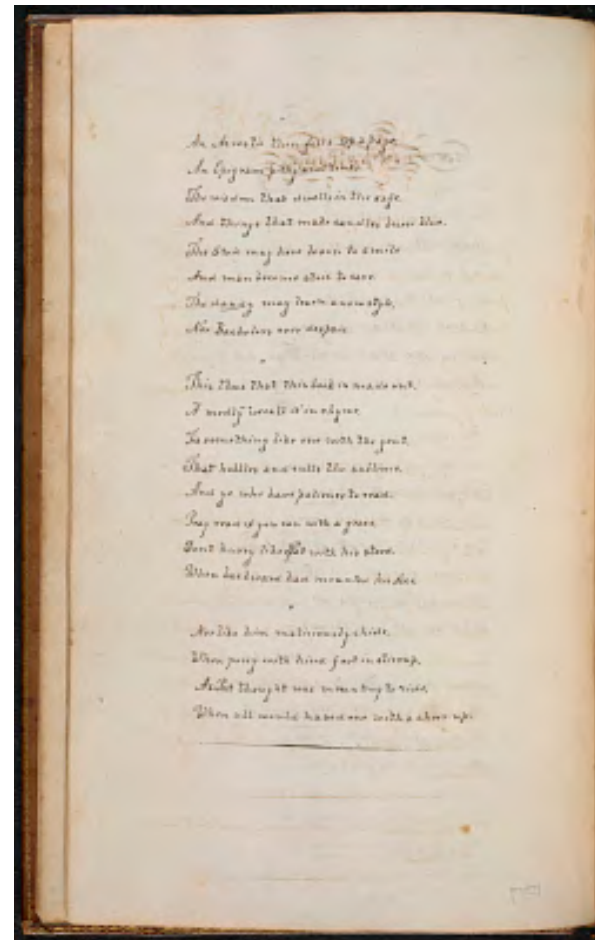 An Acrostic then fills up a page,
An Epigram
The wisdom that dwells in the sage,
And things that make candles burn blue.
The Stoic may here learn to smile
And man become
The dandy may learn a new style,
Nor Bachelors ever despair.
This thus that this book is made out,
A medly in rhyme,
Is something like one with the gout,
That hobbles and calls the sublime.
And ye who have patience to read,
Pray read if you can with a grace,
Dont hurry like Pat with his steed,
When backward had mounted his
Nor like him maliciously chide,
When pony with hind foot in stirrup,
As Pat thought was meaning to ride,
When all would have one with a